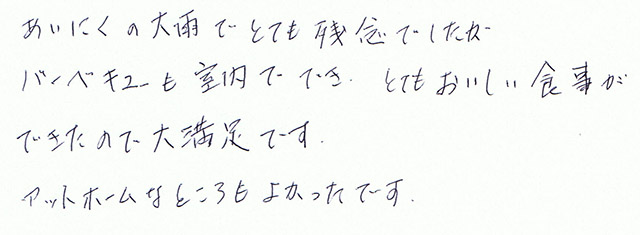 あいにくの大雨でとても残念でしたが
バーベキューも室内ででき. とてもおいしい食事が
できたので大満足です.
アットホームなところもよかったです.